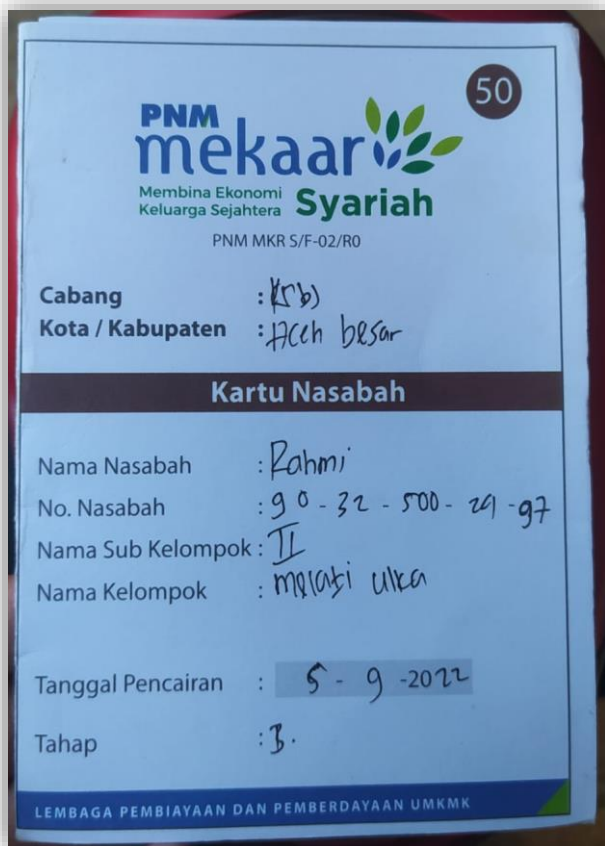 50
PNM
mekaar
Membina Ekonomi
Keluarga Sejahtera Syariah
PNM MKR S/F-02/R0
Cabang :
Kota / Kabupaten : Aceh besar
Kartu Nasabah
Nama Nasabah : Rahmi
No. Nasabah : 90 - 32 - 500 - 29 - 97
Nama Sub Kelompok : II
Nama Kelompok : melati
Tanggal Pencairan : 5 - 9 - 2022
Tahap :
LEMBAGA PEMBIAYAAN DAN PEMBERDAYAAN UMKMK